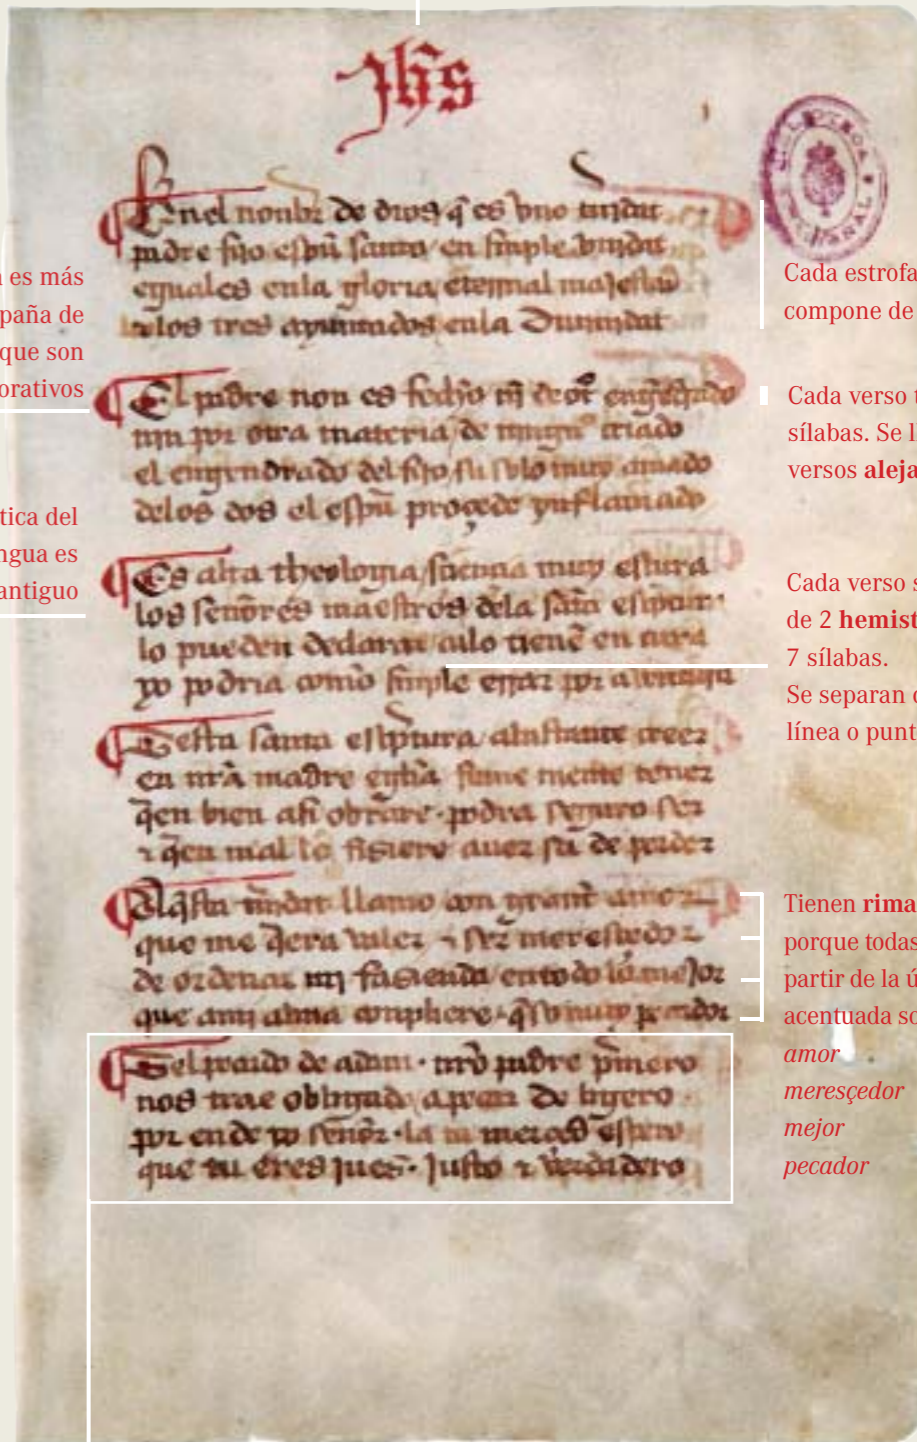 Jhs
En el nonbr de dios q̃ es vno trinidat
padre fijo espũ santo / en simple vnidat
eguales enla gloria / eternal majestad
los tres ayuntados enla Diuinidat
El padre non es fecho nj de ot̃ engẽdrado
nin por otra materia / de ningũ criado
el engendrado del fijo su solo muy amado
delos dos el espũ proçede ynflamado
Es alta theologia / sciençia muy escura
los señores maestros dela sãta escriptura
lo pueden declarar ca lo tienẽ en cura
yo podria como simple errar por auentura
Desta santa escriptura / abastante creer
en nrã madre eglesia firme mente tener
q̃en bien asi obrare · podra seguro ser
⁊ q̃en mal lo fisiere auer sea de perder
Aq̃sta trinidat llamo con grant amor
que me q̃era valer ⁊ ser meresçedor
de ordenar mj fasienda / en todo lo mejor
que a mj alma conpliere · q̃ so muy pecador
Del pecado de adam · nrõ padre primero
nos trae obligado a pecar de ligero
por ende yo señor · la tu merced espero
que tu eres jues · justo ⁊ verdadero
BIBLIOTECA
es más
paña de
que son
orativos
tica del
ngua es
antiguo
Cada estrofa
compone de
Cada verso t
sílabas. Se l
versos aleja
Cada verso s
de 2 hemist
7 sílabas.
Se separan
línea o punt
Tienen rima
porque todas
partir de la ú
acentuada so
amor
meresçedor
mejor
pecador